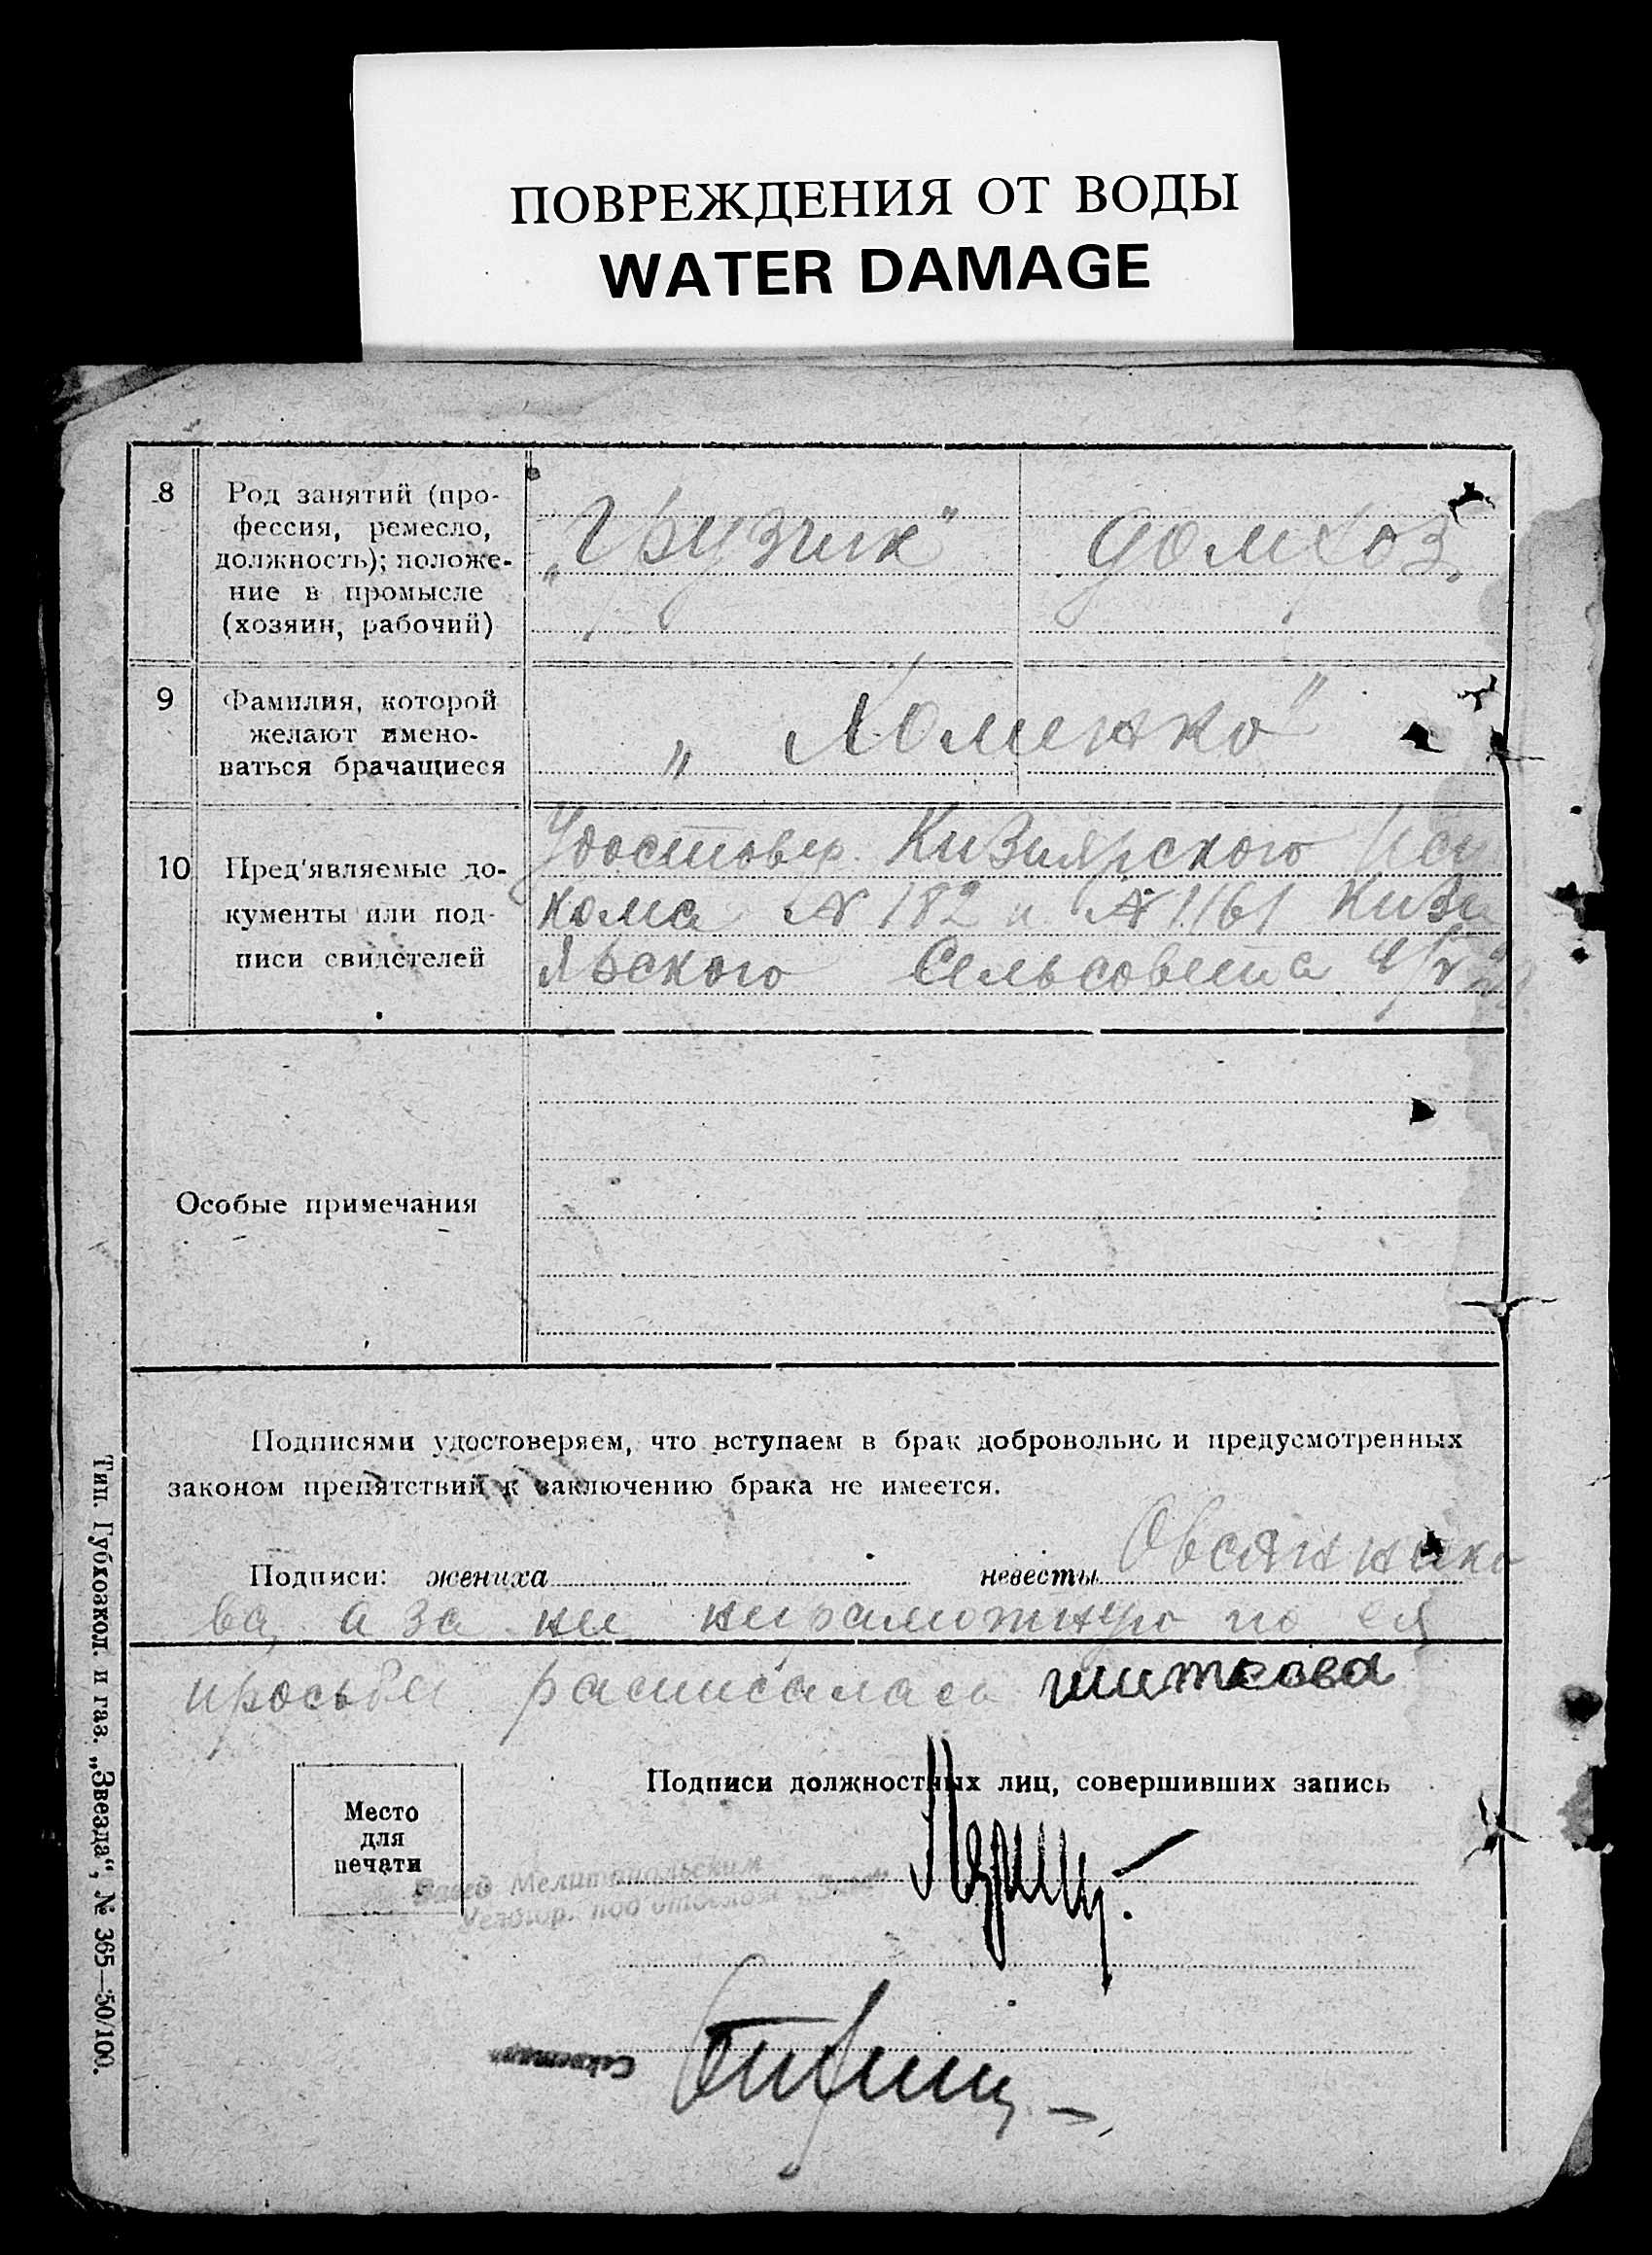 ПОВРЕЖДЕНИЯ ОТ ВОДЫ
WATER DAMAGE
8
Род занятий (про-
фессия, ремесло,
должность); положе-
ние в промысле
(хозяин, рабочий)
„Грузчик"
домхоз.
9
Фамилия, которой
желают имено-
ваться брачащиеся
„Хоменко"
10
Пред'являемые до-
кументы или под-
писи свидетелей
Удостовер. Кизиярского Исп
кома № 182 и № 1161 Кизи
ярского Сельсовета
Особые примечания
Подписями удостоверяем, что вступаем в брак добровольно и предусмотренных
законом препятствий к заключению брака не имеется.
Подписи: жениха
невесты Овсяннико
ва, а за не неграмотную по ея
просьбе расписалась шиткова
Место
для
печати
Подписи должностных лиц, совершивших запись
Завед Мелитопольским
под отделом
Секретарь
Тип. Губкозкол. и газ. „Звезда", № 365—50/100.